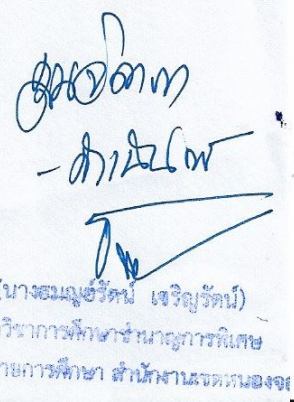 - ดำเนินการ
(นางธมญย์รัตน์ เจริญรัตน์)
วิชาการศึกษาชำนาญการพิเศษ
ายการศึกษา สำนักงานเขตหนองจอ